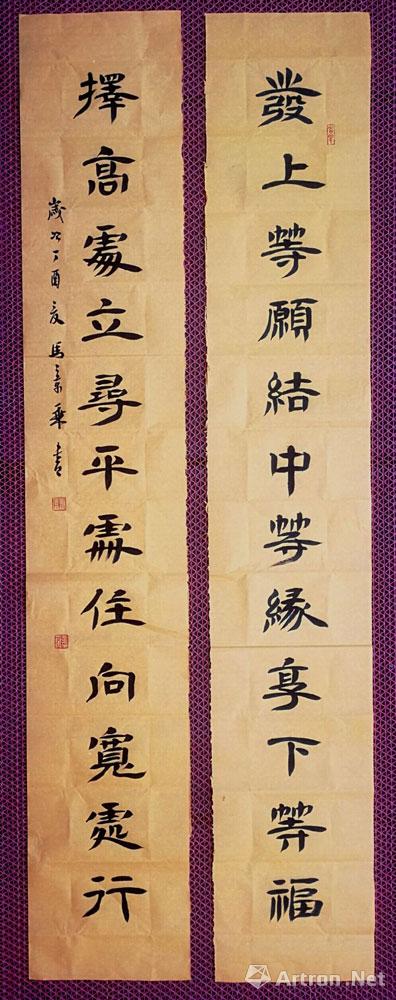 發上等願結中等緣享下等福
擇高處立尋平處住向寬處行
歲次丁酉夏馬景乘書
Artron.Net